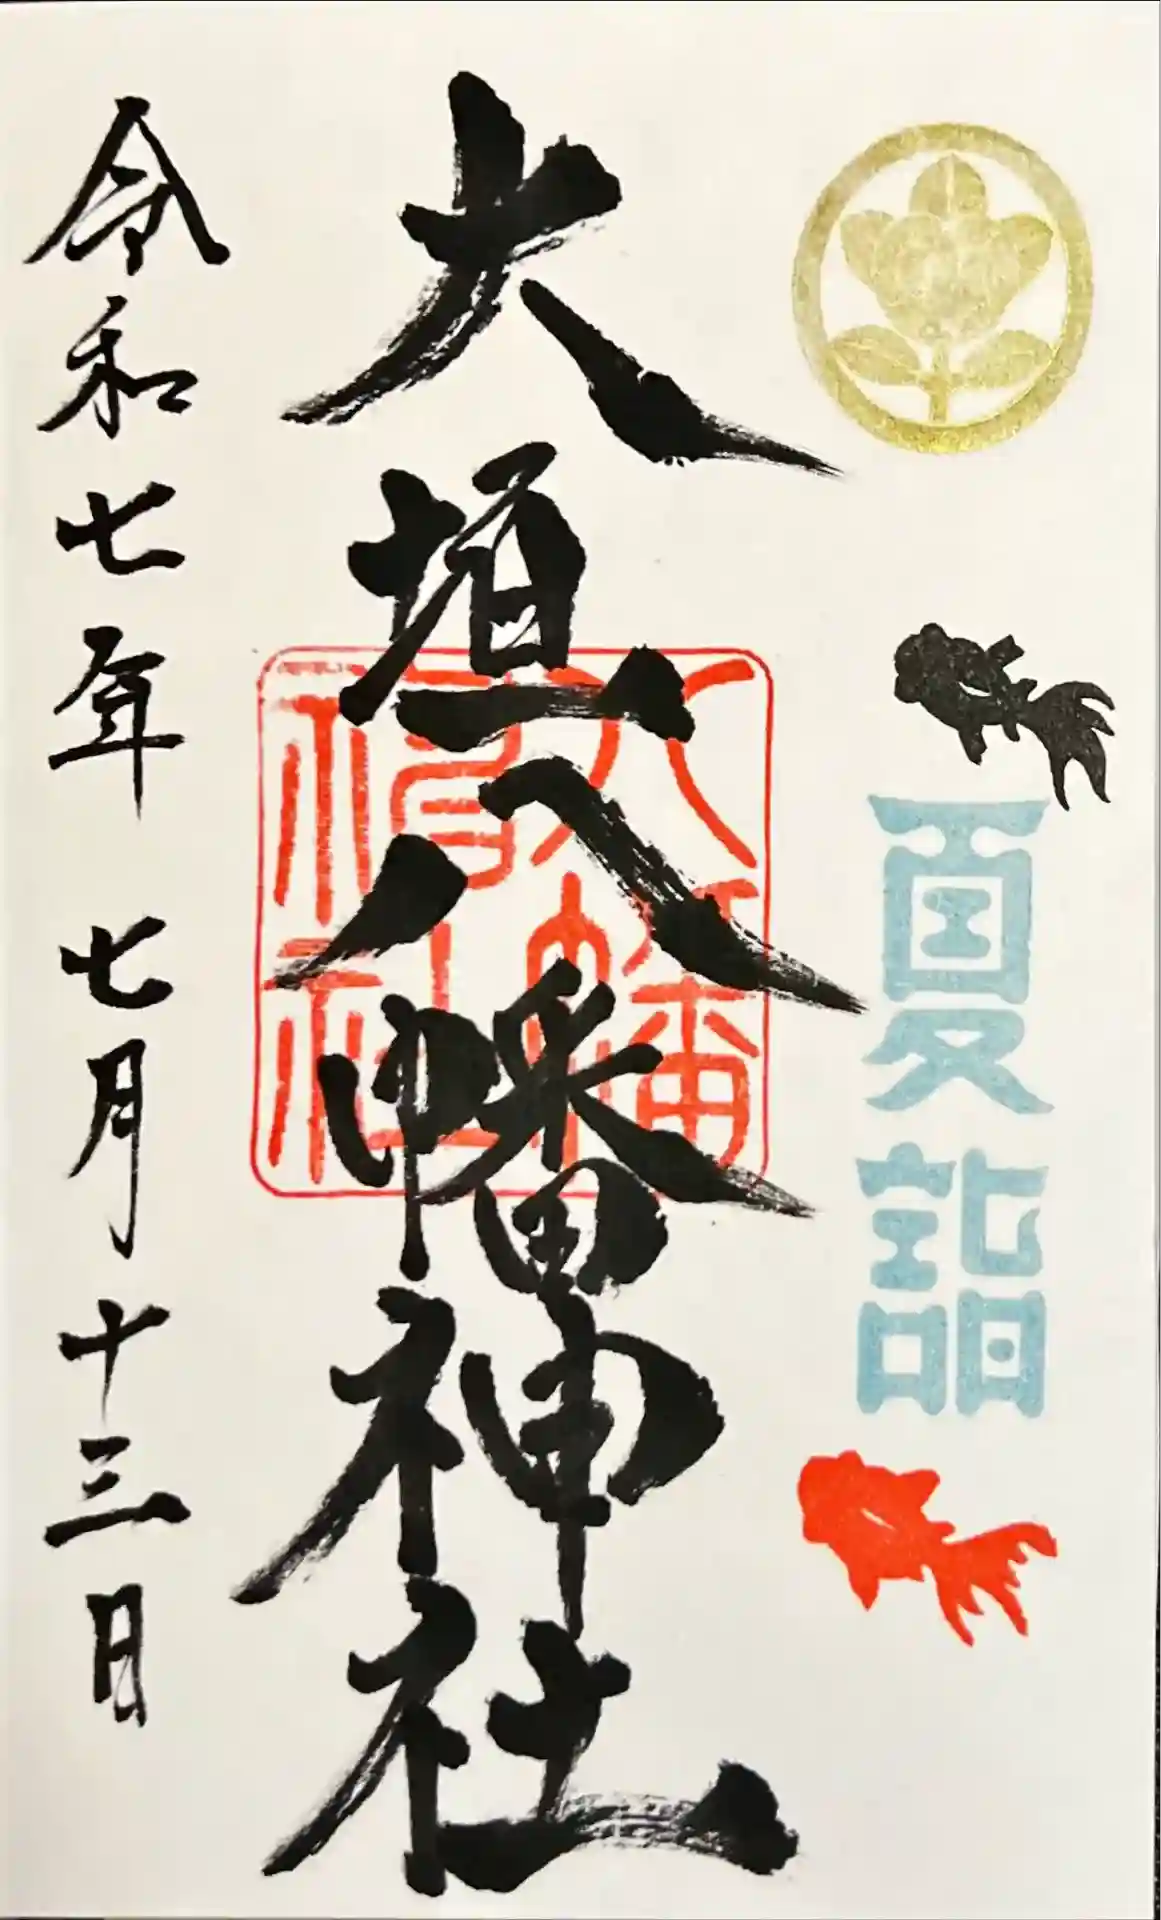 夏詣
大垣八幡神社
八幡神社
令和七年 七月十三日